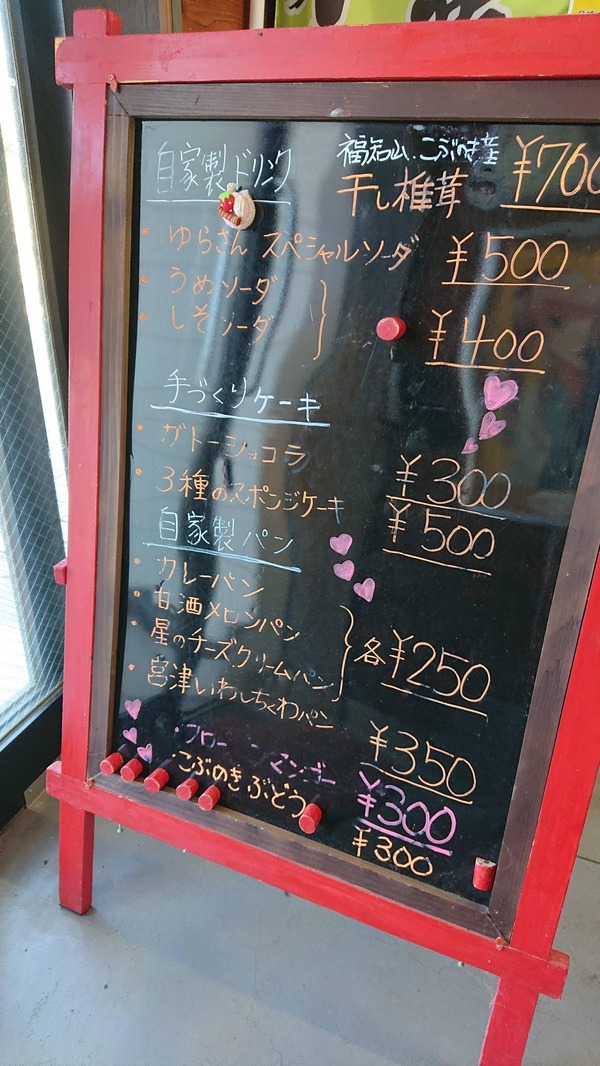 自家製ドリンク
福知山.こぶのき産
干し椎茸 ¥700
・ゆらさん スペシャルソーダ ¥500
・うめソーダ
・しそソーダ
¥400
手づくりケーキ
・ガトーショコラ ¥300
・3種のスポンジケーキ ¥500
自家製パン
・カレーパン
・甘酒メロンパン
・星のチーズクリームパン
各¥250
・宮津いわしちくわパン ¥350
・フローマンゴー ¥300
・こぶのきぶどう ¥300